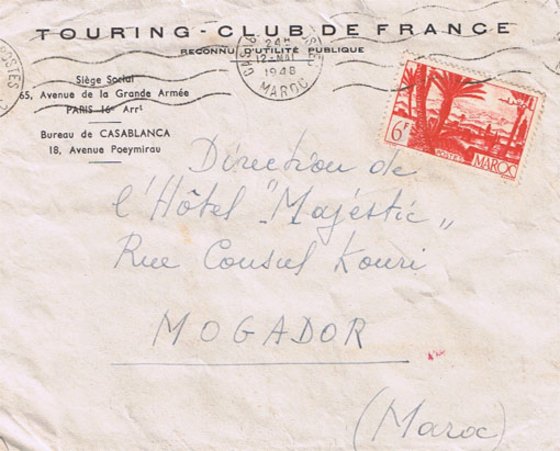 TOURING-CLUB DE FRANCE
RECONNU D'UTILITÉ PUBLIQUE
Siège Social
65, Avenue de la Grande Armée
PARIS 16e Arrt
Bureau de CASABLANCA
18, Avenue Poeymirau
24H
12-MAI
1948
MAROC
POSTES
6F
POSTES
MAROC
Direction de
l'Hôtel "Majestic"
Rue Consul Kouri
MOGADOR
(Maroc)